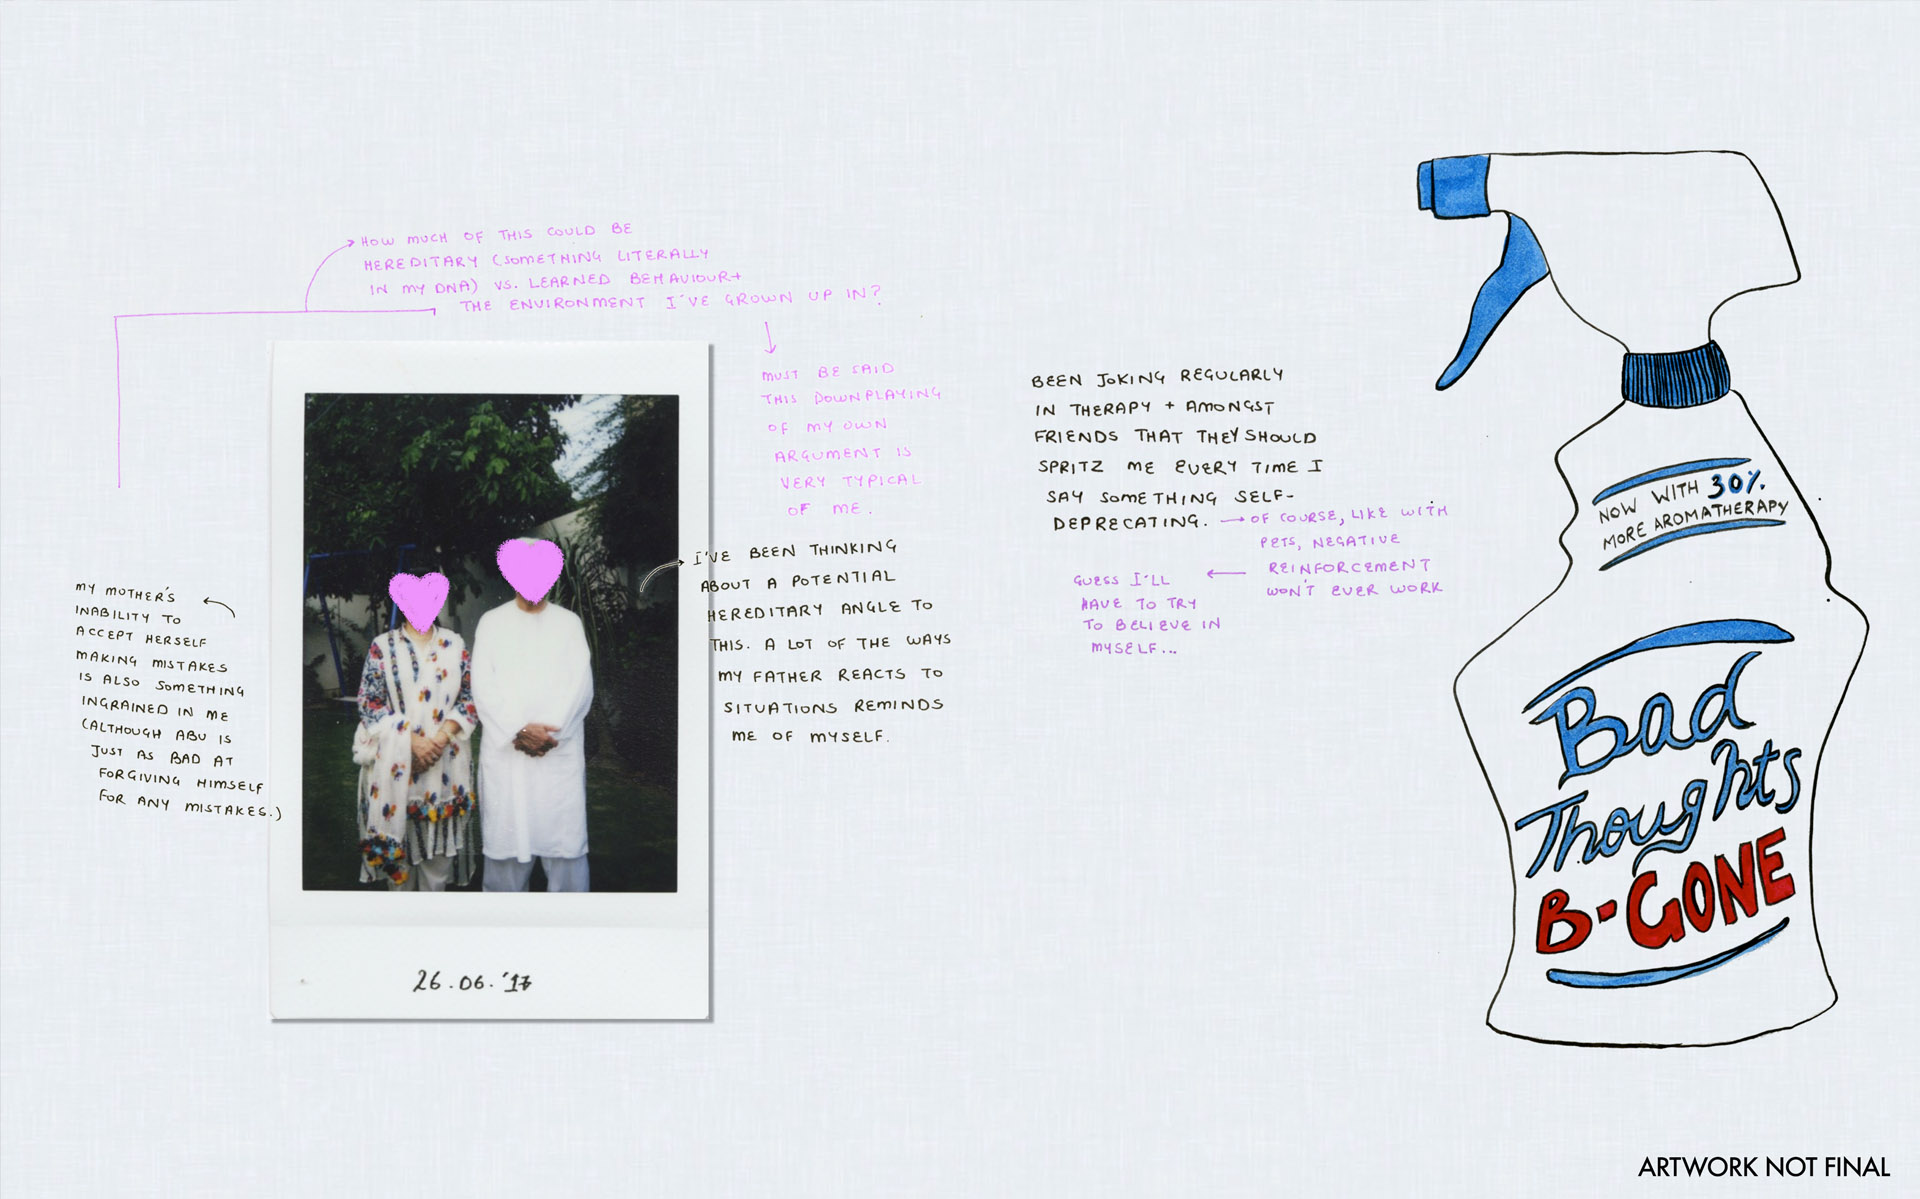 HOW MUCH OF THIS COULD BE
HEREDITARY (SOMETHING LITERALLY
IN MY DNA) VS. LEARNED BEHAVIOUR +
THE ENVIRONMENT I'VE GROWN UP IN?
MUST BE SAID
THIS DOWNPLAYING
OF MY OWN
ARGUMENT IS
VERY TYPICAL
OF ME.
MY MOTHER'S
INABILITY TO
ACCEPT HERSELF
MAKING MISTAKES
IS ALSO SOMETHING
INGRAINED IN ME
(ALTHOUGH ABU IS
JUST AS BAD AT
FORGIVING HIMSELF
FOR ANY MISTAKES.)
I'VE BEEN THINKING
ABOUT A POTENTIAL
HEREDITARY ANGLE TO
THIS. A LOT OF THE WAYS
MY FATHER REACTS TO
SITUATIONS REMINDS
ME OF MYSELF.
26.06.'17
BEEN JOKING REGULARLY
IN THERAPY + AMONGST
FRIENDS THAT THEY SHOULD
SPRITZ ME EVERY TIME I
SAY SOMETHING SELF-
DEPRECATING.
OF COURSE, LIKE WITH
PETS, NEGATIVE
REINFORCEMENT
WON'T EVER WORK
GUESS I'LL
HAVE TO TRY
TO BELIEVE IN
MYSELF...
NOW WITH 30%
MORE AROMATHERAPY
Bad
Thoughts
B-GONE
ARTWORK NOT FINAL